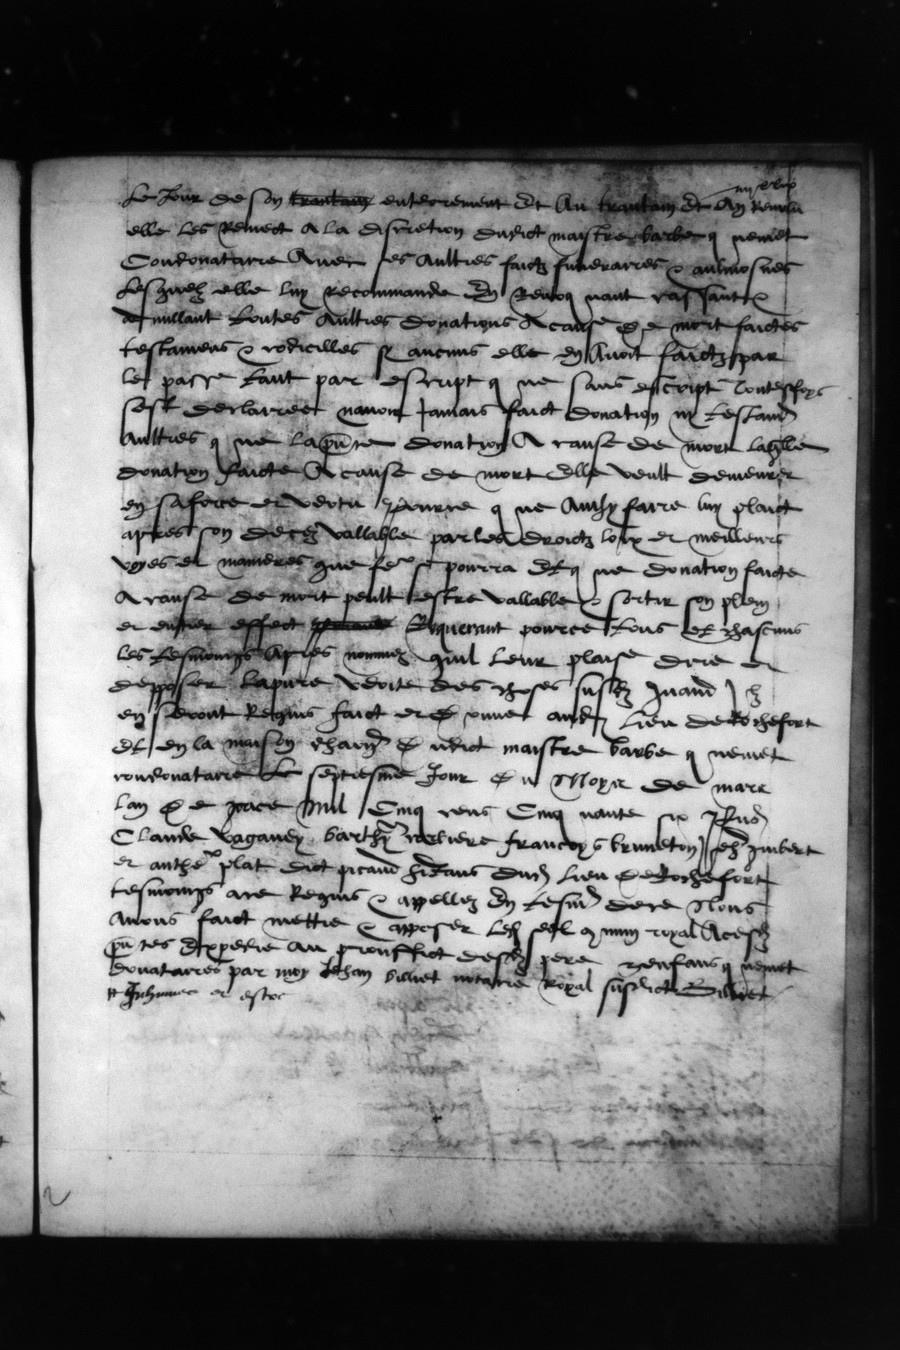 Le Jour de son trantain enterrement et Au trantain et An Revolu
elle les Remect A la discretion dudict maistre barbe q nemet
Condonataire Avec ses Aultres faictz funeraires & aulmosnes
Lesquelz elle luy recommande En Revoq uant cassant &
adnullant toutes Aultres donations A cause de mort faictes
testamens & codicilles sy aucuns elle en Avoit faictz par
le passe tant par escript q ne sans escript
sest declairee navoir Jamais faict donation ny testamt
Aultres q ne la pnte donation A cause de mort laqlle
donation faicte A cause de mort Elle veult demeurer
en sa force et vertu q ne Ainsy faire luy plaict
apres son decez vallable par les droictz loix et meilleurs
voyes et manieres que fe se pourra Et q ne donation faicte
A cause de mort peult estre vallable & sortir son plein
et entier effect Requerant pource tous et chascuns
les tesmoings Apres nommez quil leur plaise dire et
depposer la pure verite des choses susd quand Ilz
en seront Requis faict et d onne aud lieu de Rochefort
et en la maison d udict maistre barbe q nemet
condonataire Le septiesme Jour d u Moys de mars
lan d e grace Mil Cinq cens Cinq uante six
Claude barthy francoys bruneton Jeh Imbert
et anthe plat dict picaud hitans dud Lieu de Rochefort
tesmoings a ce Requis & appellez En tesm de ce Nous
Avons faict mettre & apposer Led seel q mun royal A cesd
pn tes Expedie au prouffict desd pere & enfans q nemet
donataires par moy Jehan billiet notaire Royal susdict Billiet
et estoc